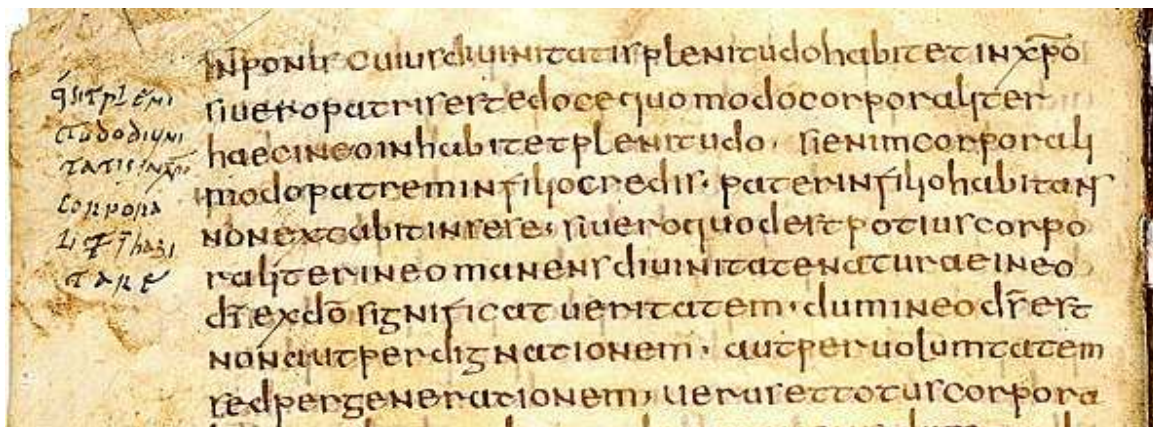 qsit pleni
tudo diuini
tatis in xpo
corpora
lit habi
tare
inponis cuius diuinitatis plenitudo habitet in xp̄o
si uero patris est edoce quomodo corporaliter
haec in eo inhabitet plenitudo · si enim corporali
modo patrem in filio credis · pater in filio habitans
non extabit in sese · si uero quod est potius corpo
raliter in eo manens diuinitate naturae in eo
dr̄s ex dō significat ueritatem · dum in eo ds̄ est
non aut per dignationem · aut per uolumtatem
sed per generationem · uerus et totus corpora